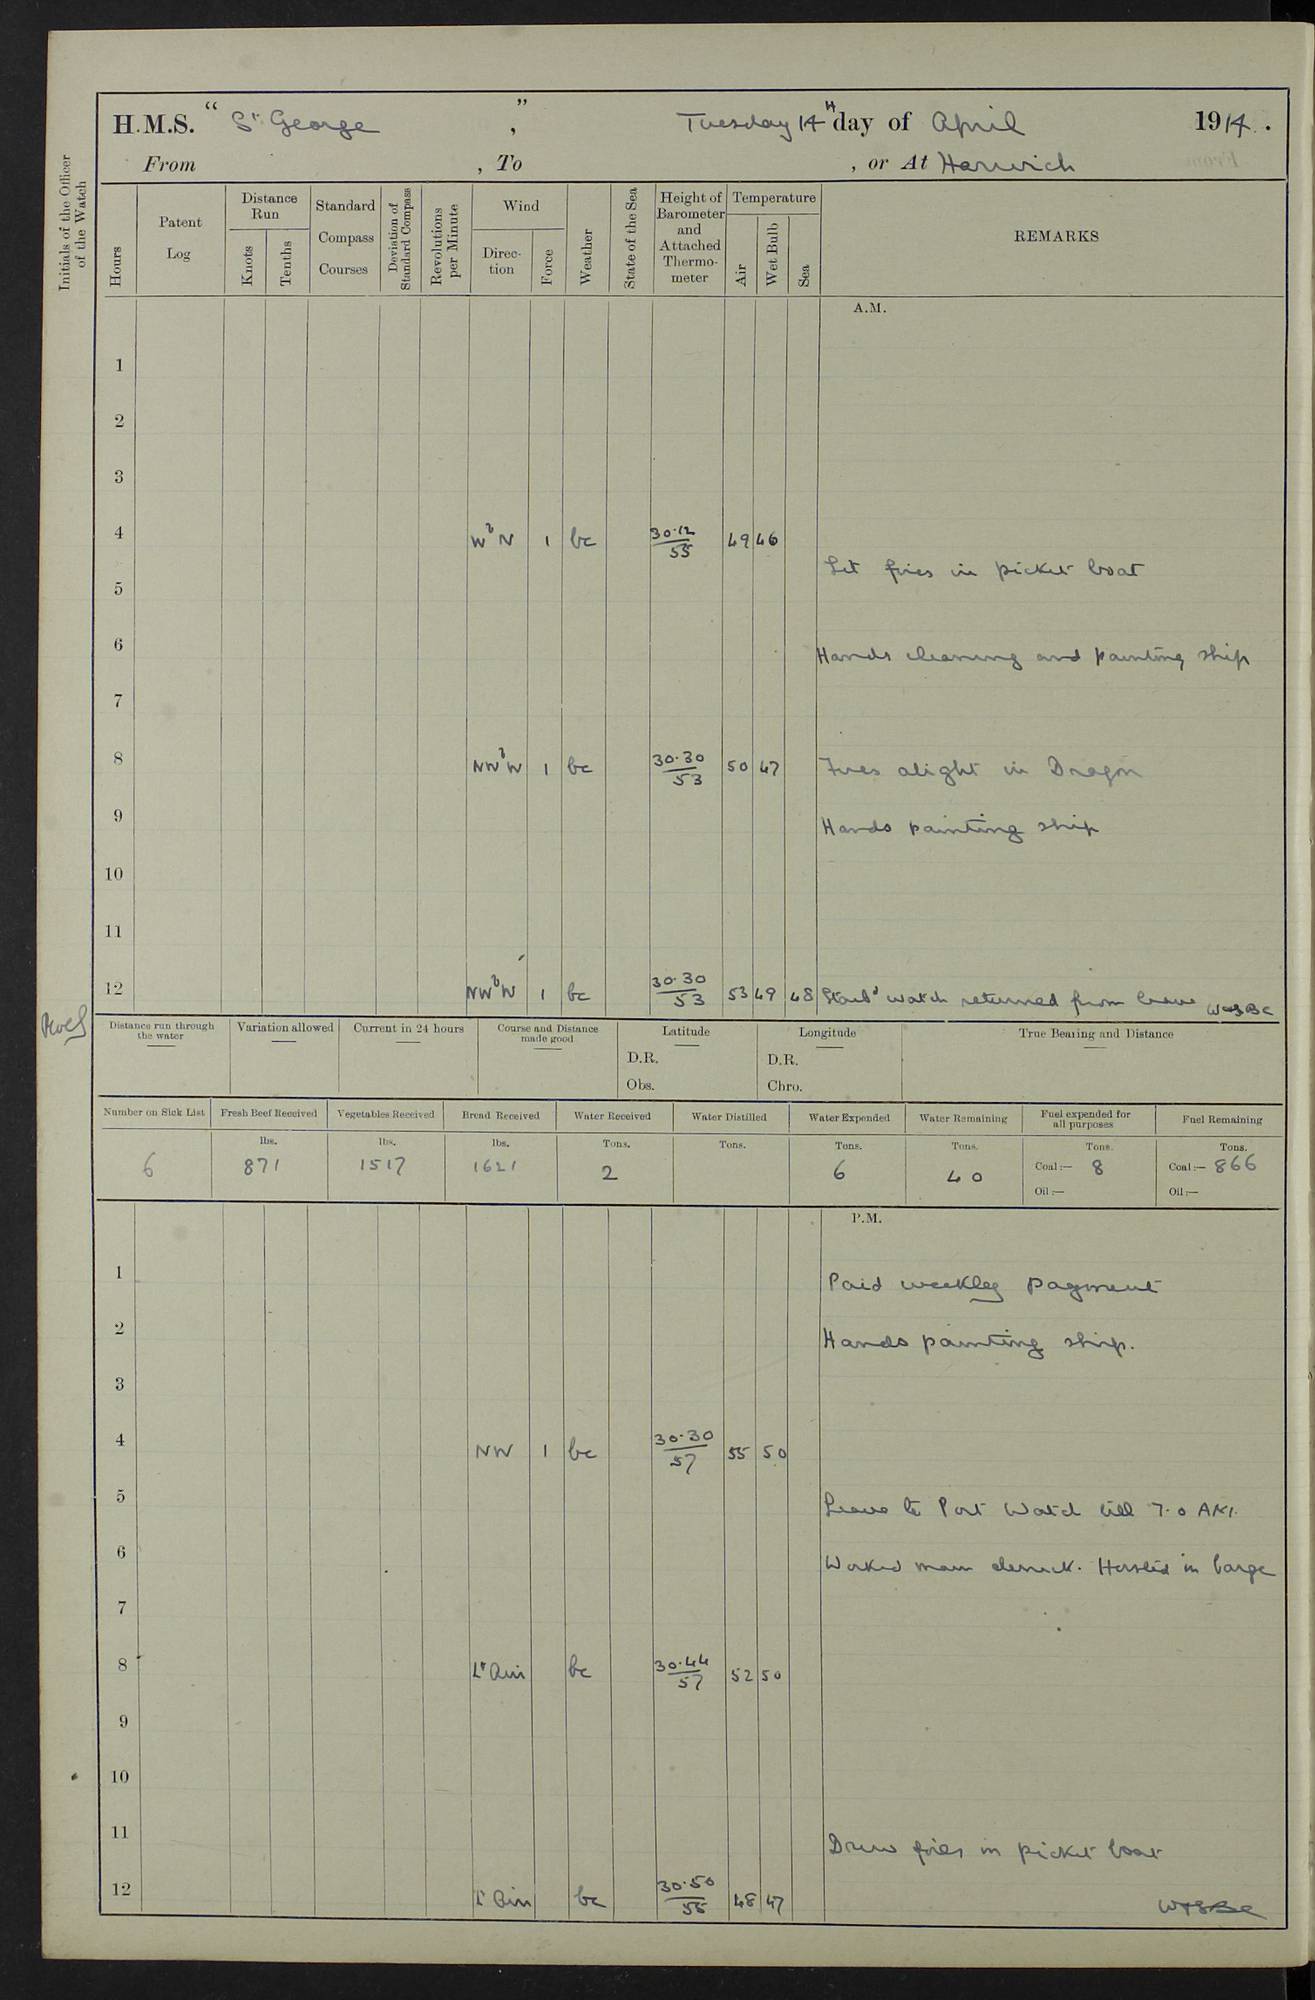 H.M.S. "St George", Tuesday 14th day of April 1914.
From , To , or At Harwich
Initials of the Officer of the Watch
Hours
Patent Log
Distance Run
Knots Tenths
Standard Compass Courses
Deviation of Standard Compass
Revolutions per Minute
Wind
Direction Force
Weather
State of the Sea
Height of Barometer and Attached Thermometer
Temperature
Air Wet Bulb Sea
REMARKS
A.M.
1
2
3
4 WbN 1 bc 30.12/55 49 46
Lit fires in picket boat
5
6 Hands cleaning and painting ship
7
8 NWbW 1 bc 30.30/53 50 47 Fires alight in Dragon
9 Hands painting ship
10
11
12 NWbW 1 bc 30.30/53 53 49 48 Starbd watch returned from leave
Distance run through the water
Variation allowed
Current in 24 hours
Course and Distance made good
Latitude
D.R.
Obs.
Longitude
D.R.
Chro.
True Bearing and Distance
Number on Sick List Fresh Beef Received Vegetables Received Bread Received Water Received Water Distilled Water Expended Water Remaining Fuel expended for all purposes Fuel Remaining
lbs. lbs. lbs. Tons. Tons. Tons. Tons. Tons. Tons.
6 871 1517 1621 2 6 40 Coal:— 8 Coal:— 866
Oil:— Oil:—
P.M.
1 Paid weekly payment
2 Hands painting ship.
3
4 NW 1 bc 30.30/57 55 50
5 Leave to Port Watch till 7.0 AM.
6 Worked main derrick. Hoisted in barge
7
8 Lt Air bc 30.44/57 52 50
9
10
11 Drew fires in picket boat
12 Lt Air bc 30.50/56 48 47